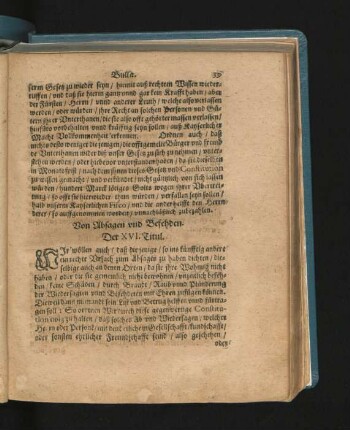 Bulla. 39
serm Gesetz zu wieder seyn / hiemit auß rechtem Wissen wieder-
ruffen / und daß sie hierin gantz und gar kein Krafft haben / aber
der Fürsten / Herrn / und anderer Leuth / welche also verlassen
werden / oder würden / ihre Recht an solchen Personen und Gü-
tern ihrer Unterthanen / die sie also offt gehörter massen verlassen /
vorbehalten und kräfftig seyn sollen / auß Kayserlicher
Macht Vollkommenheit erkennen. Ordnen auch / daß
nichts desto weniger die jenigen / die offtgemelte Bürger und fremb-
de Unterthanen wider diß unser Gesetz zu sich zu nehmen /
sich in werden / oder hiebevor unterstanden haben / da sie dieselben
in Monatsfrist / nach dem sie dieses Gesetz und
zu wissen gemacht / und verkündet / nicht gäntzlich von sich lassen
würden / hundert Marck lötiges Golts wegen ihrer Ubertret-
tung / so offt sie hierwider thun würden / verfallen seyn sollen /
halb unserm Kayserlichen Fisco / und die ander helffte den Herrn
derer / so auffgenommen worden / unnachläßlich zubezahlen.
Von Absagen und Befehden.
Der XVI. Titul.
WIr wöllen auch / daß die jenige / so ins künfftig andere
mit rechter Ursach zum Absagen zu haben dichten / die-
selbige auch an denen Orten / da sie ihre Wohnung nicht
haben / oder die sie gemeinlich nicht bewohnen / unzeitlich befehe-
den / keine Schäden / durch Brandt / Raub und Plünderung
der Wiedersagten und Befehdeten mit Ehren zufügen können.
Dieweil dann niemandt sein List und Betrug helffen und fürtra-
gen soll / So ordnen Wir durch diese gegenwertige Constitu-
tion ewig zu halten / daß solcher Ab und Wiedersagen / welchen
Herrn oder Person / mit denen etliche in Gesellschafft / Kundschafft /
oder sonsten ehrlicher Freundschafft seind / also geschehen /
oder